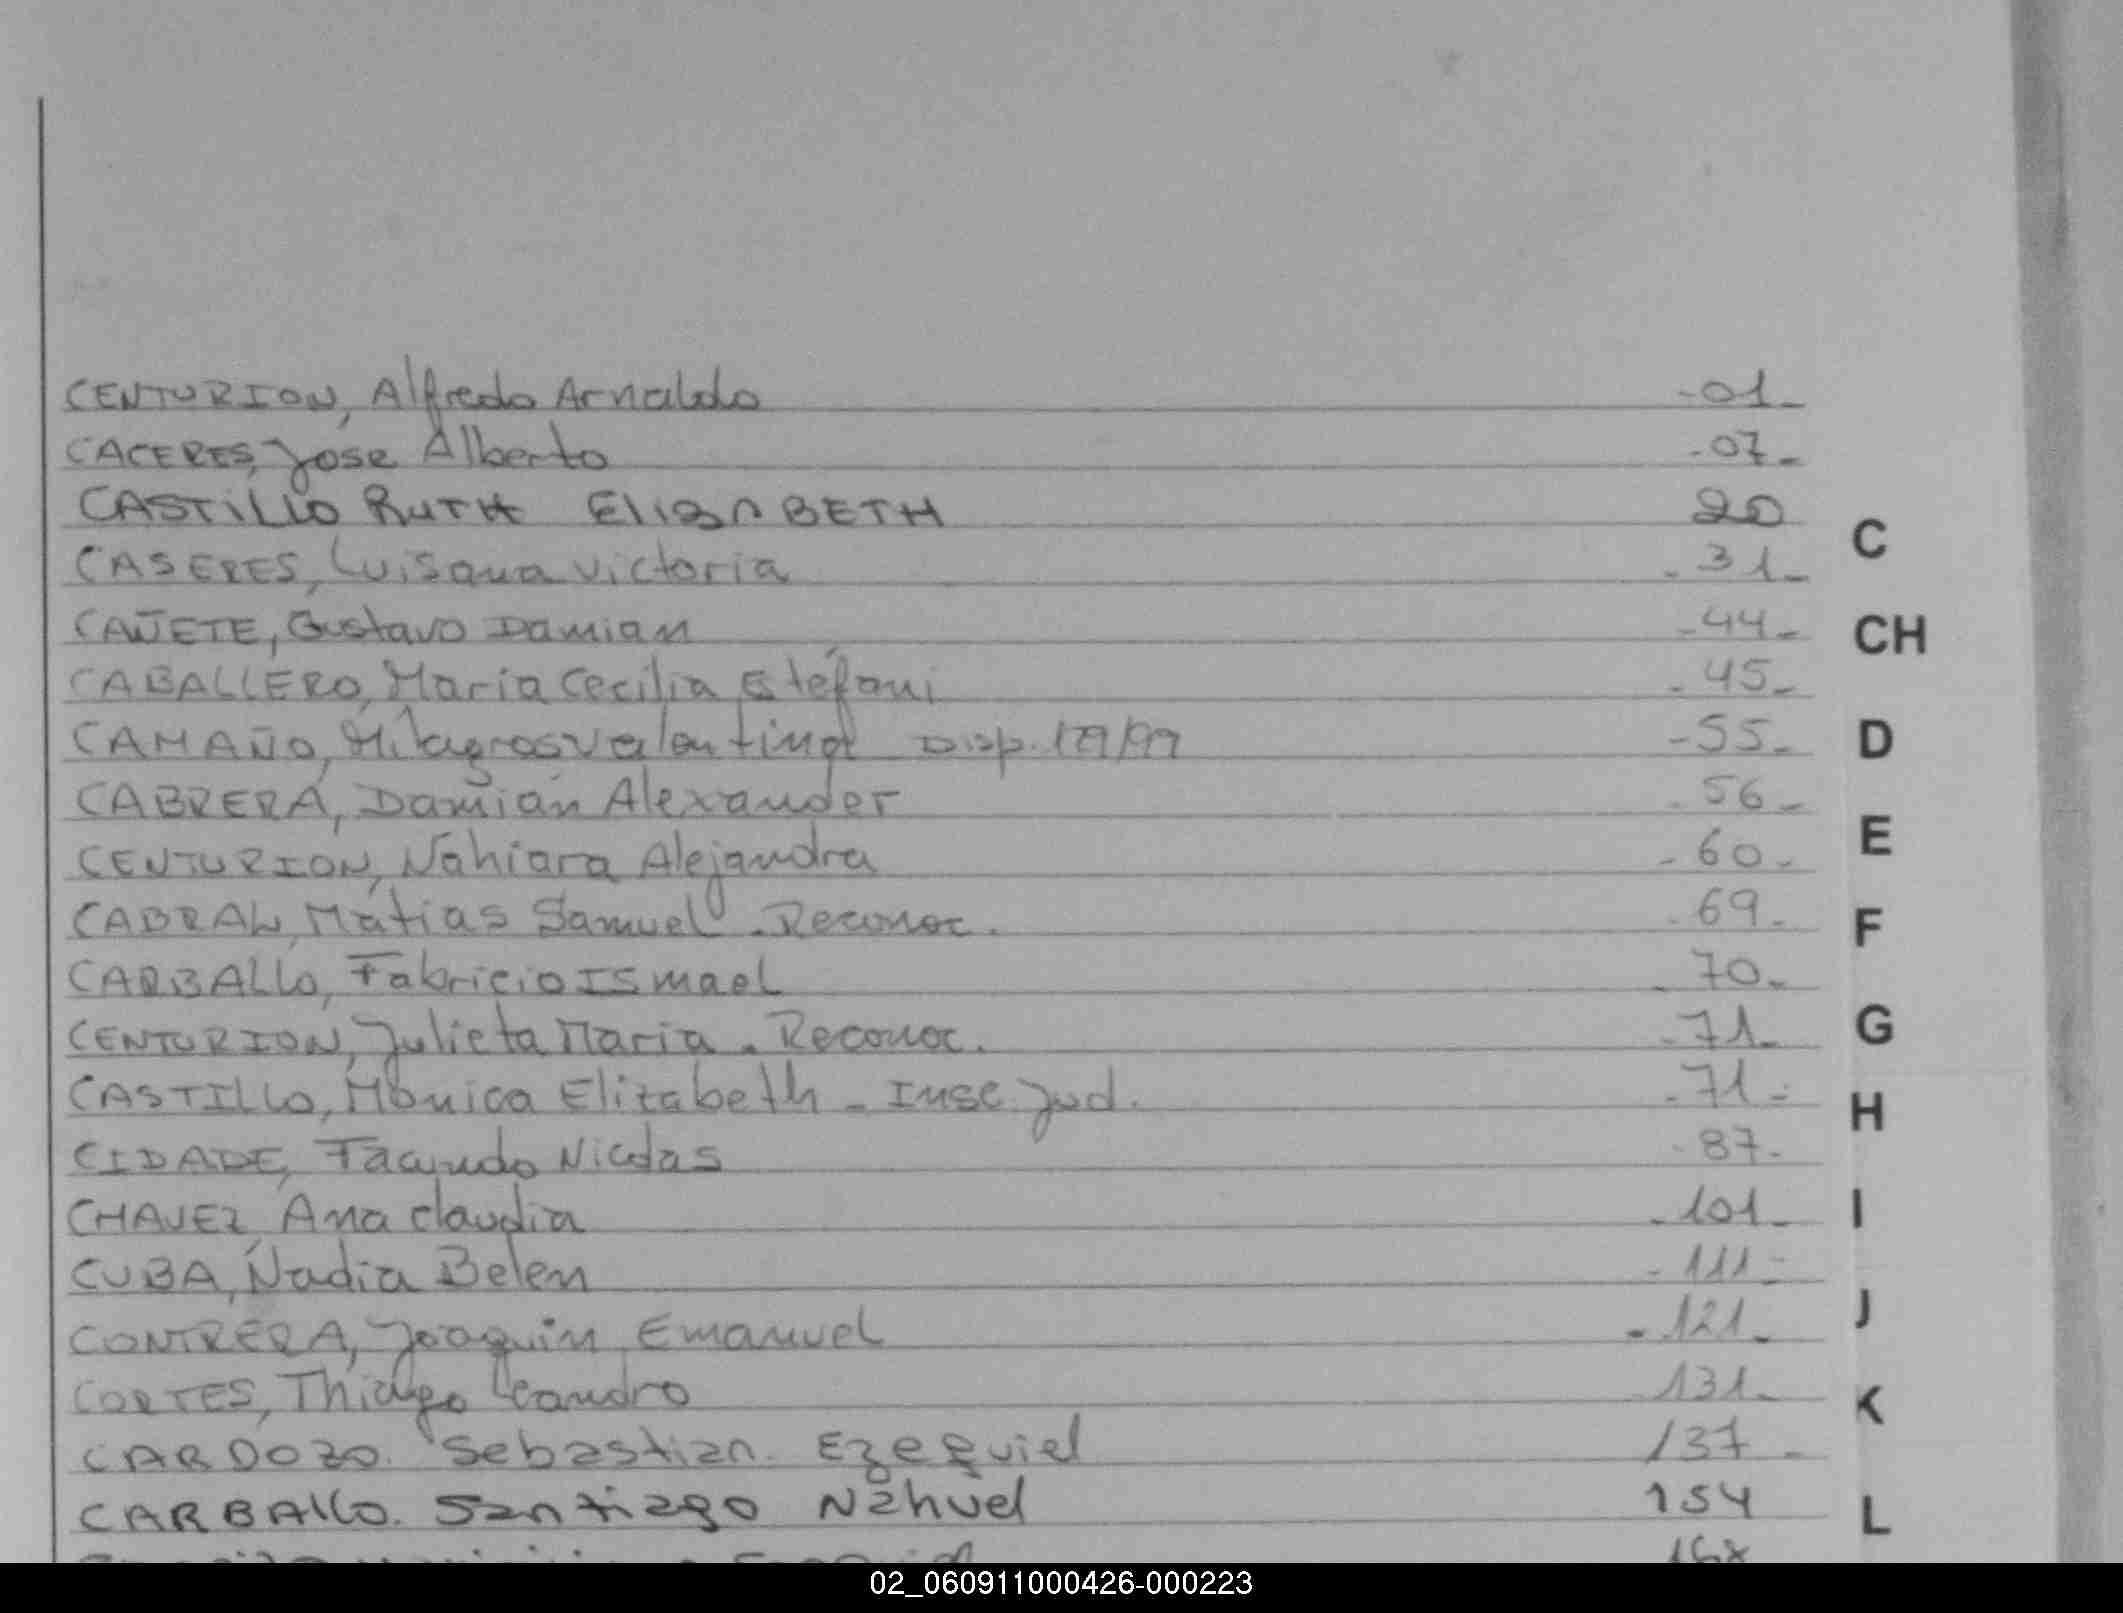 CENTURION, Alfredo Arnaldo -01-
CACERES, Jose Alberto -07-
CASTILLO RUTH ELISABETH 20
CASERES, Luisana Victoria -31-
CAÑETE, Gustavo Damian -44-
CABALLERO, Maria Cecilia Estéfani -45-
CAMAÑO, Milagros Valentina Disp. 179/99 -55-
CABRERA, Damián Alexander -56-
CENTURION, Nahiara Alejandra -60-
CABRAL, Matias Samuel - Reconoc. -69-
CARBALLO, Fabricio Ismael -70-
CENTURION, Julieta Maria - Reconoc. -71-
CASTILLO, Mónica Elizabeth - Insc. Jud. -71-
CIDADE, Facundo Nicolas -87-
CHAVEZ, Ana Claudia -101-
CUBA, Nadia Belen -111-
CONTRERA, Joaquin Emanuel -121-
CORTES, Thiago Leandro -131-
CARDOZO. Sebastian. Ezequiel 137-
CARBALLO. Santiago Nahuel 154
C
CH
D
E
F
G
H
I
J
K
L
02_060911000426-000223